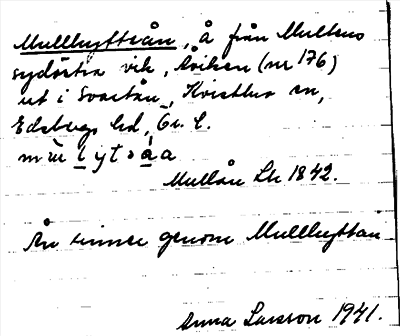 Mullhyttsån, å från Multens
sydöstra vik, Åviken (nr 176)
ut i Svartån, Kvistbro sn,
Edsbergs hd, Ör. l.
Mullån Lk 1842.
Ån rinner genom Mullhyttan
Anna Larsson 1941.